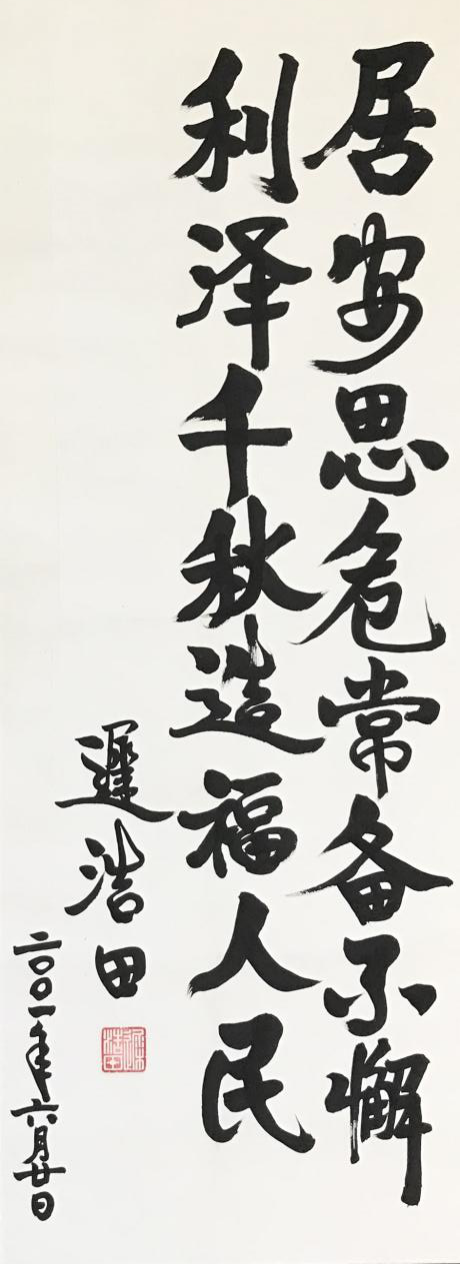 居安思危常备不懈
利泽千秋造福人民
遲浩田
二〇〇一年六月廿日
遲浩田